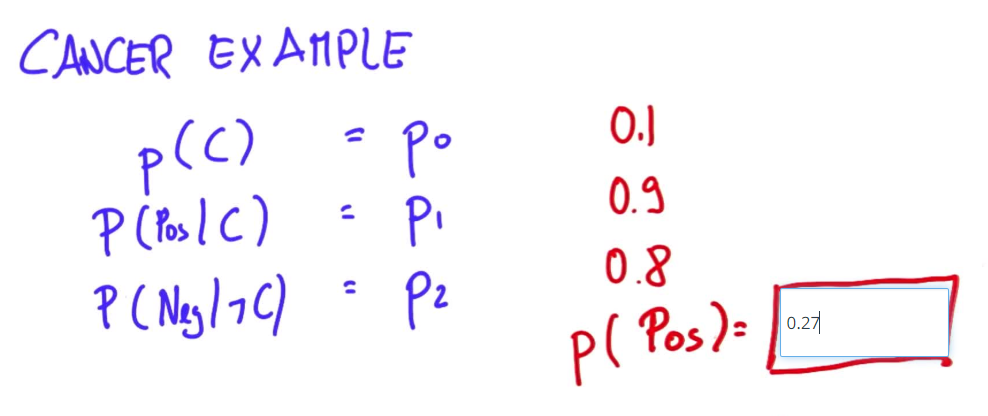 CANCER EXAMPLE
p(C) = p₀ 0.1
P(Pos|C) = p₁ 0.9
P(Neg|¬C) = p₂ 0.8
p(Pos)= 0.27